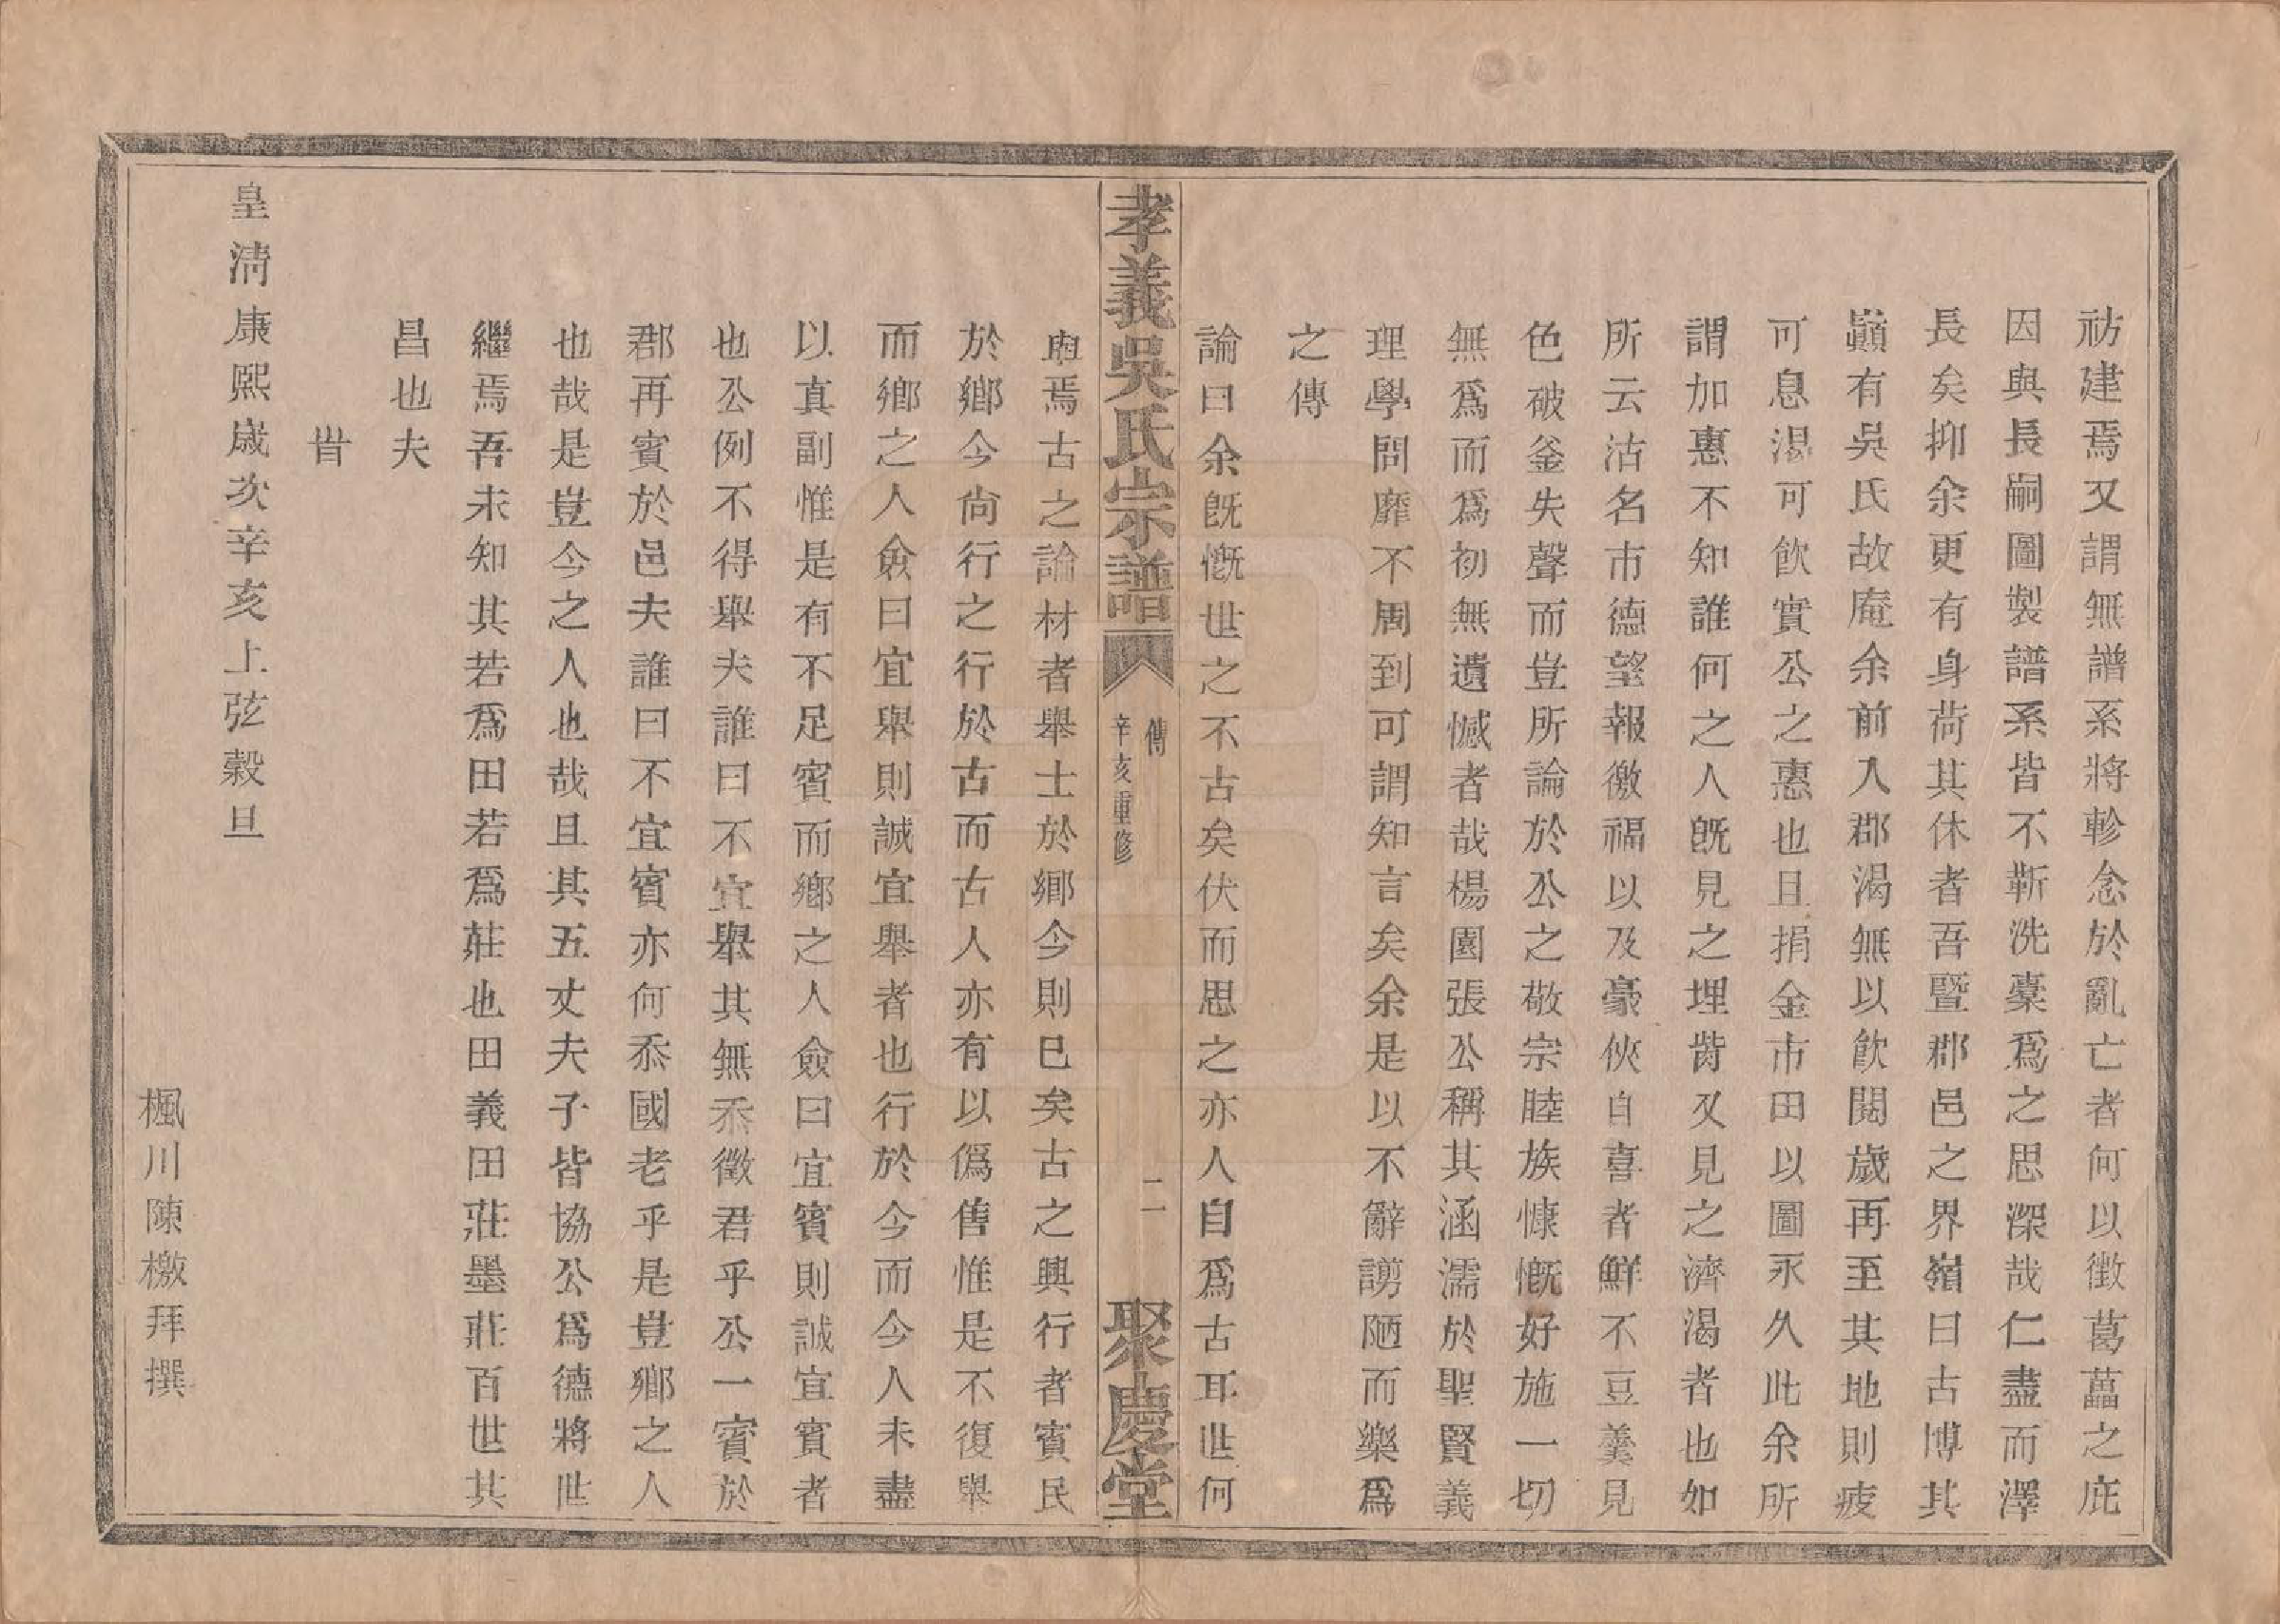 祊建焉又謂無譜系將軫念於亂亡者何以徵葛藟之庇
因與長嗣圖製譜系皆不靳洗橐爲之思深哉仁盡而澤
長矣抑余更有身荷其休者吾暨郡邑之界嶺曰古博其
巔有吳氏故庵余前入郡渴無以飲閱歲再至其地則疲
可息渴可飲實公之惠也且捐金市田以圖永久此余所
謂加惠不知誰何之人旣見之埋胔又見之濟渴者也如
所云沽名市德望報徼福以及豪俠自喜者鮮不豆羹見
色破釜失聲而豈所論於公之敬宗睦族慷慨好施一切
無爲而爲初無遺憾者哉楊園張公稱其涵濡於聖賢義
理學問靡不周到可謂知言矣余是以不辭謭陋而樂爲
之傳
論曰余旣慨世之不古矣伏而思之亦人自爲古耳世何
與焉古之論材者舉士於鄉今則已矣古之興行者賓民
於鄉今尙行之行於古而古人亦有以僞售惟是不復舉
而鄉之人僉曰宜舉則誠宜舉者也行於今而今人未盡
以真副惟是有不足賓而鄉之人僉曰宜賓則誠宜賓者
也公例不得舉夫誰曰不宜舉其無忝徵君乎公一賓於
郡再賓於邑夫誰曰不宜賓亦何忝國老乎是豈鄉之人
也哉是豈今之人也哉且其五丈夫子皆協公爲德將世
繼焉吾未知其若爲田若爲莊也田義田莊墨莊百世其
昌也夫
旹
皇淸康熙歲次辛亥上弦穀旦
楓川陳檄拜撰
孝義吳氏宗譜
傳
辛亥重修
二
聚慶堂